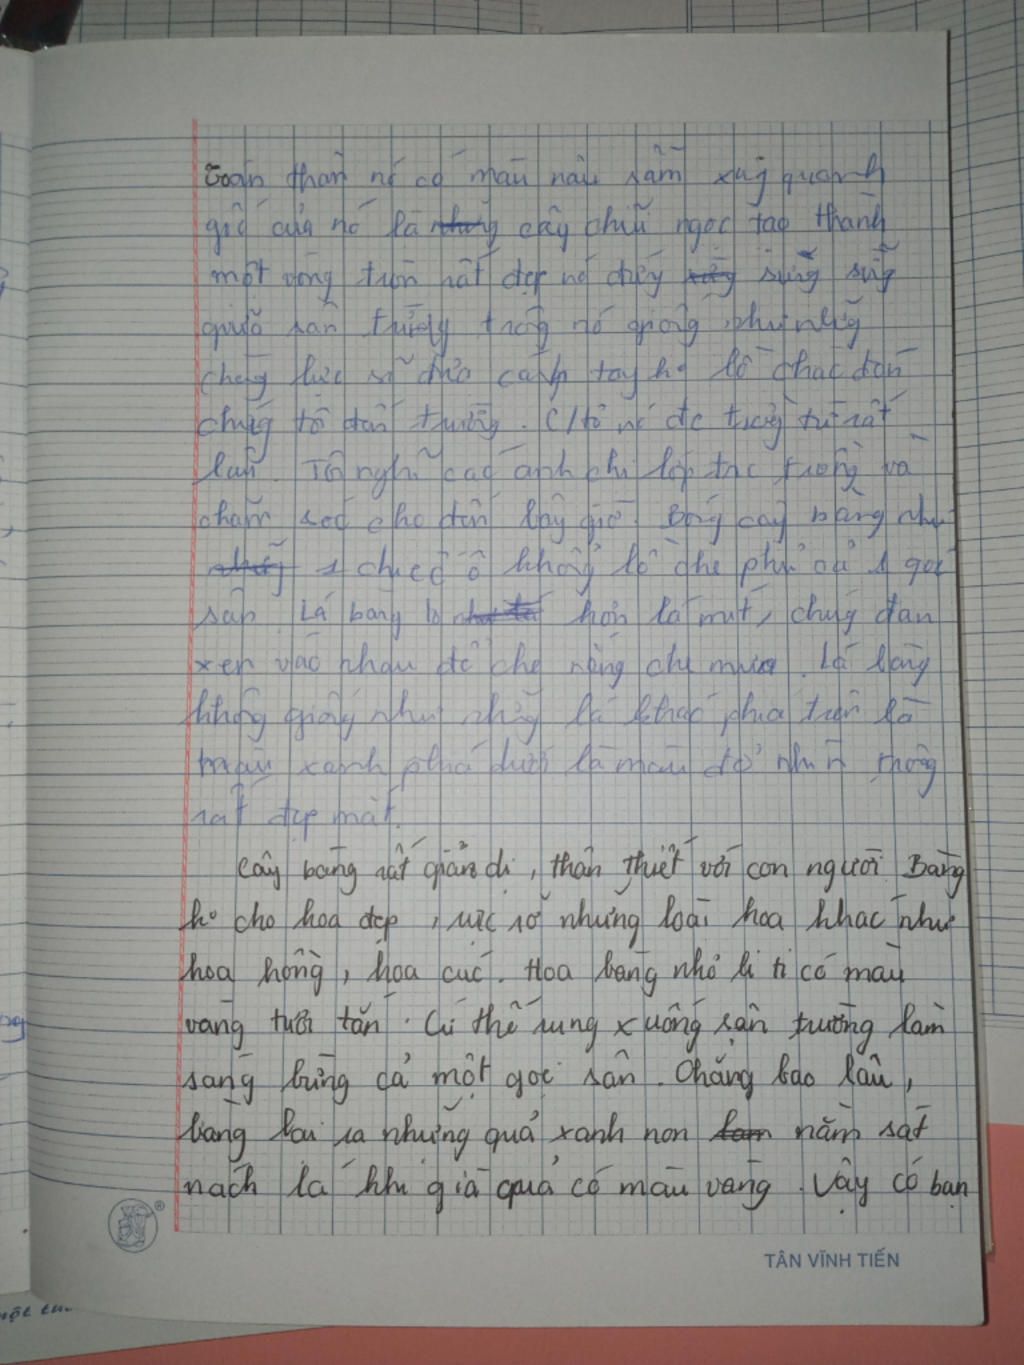 toàn thân nó có màu nâu sẫm xung quanh
gốc của nó là cây chuỗi ngọc tạo thành
một vòng tròn rất đẹp nó đứng sừng sững
giữa sân trường trông nó giống như những
chàng lực sĩ đưa cánh tay hộ
chúng tôi đến trường. nó đc trồng từ rất
lâu. Tôi nghĩ các anh chị lớp trc trồng và
chăm sóc cho đến bây giờ. Bóng cây bàng như
1 chiếc ô khổng lồ che phủ cả 1 góc
sân. Lá bàng to hơn lá mít, chúng đan
xen vào nhau để che nắng che mưa. Lá bàng
không giống như những lá khác phía trên là
màu xanh phía dưới là màu đỏ nhìn trông
rất đẹp mắt.
Cây bàng rất giản dị, thân thiết với con người. Bàng
ko cho hoa đẹp, rực rỡ những loài hoa khác như
hoa hồng, hoa cúc. Hoa bàng nhỏ li ti có màu
vàng tươi tắn. Cứ thế rung xuống sân trường làm
sáng bừng cả một góc sân. Chẳng bao lâu,
bàng lại ra những quả xanh non nằm sát
nách lá khi già quả có màu vàng. Vậy có bạn
TÂN VĨNH TIẾN